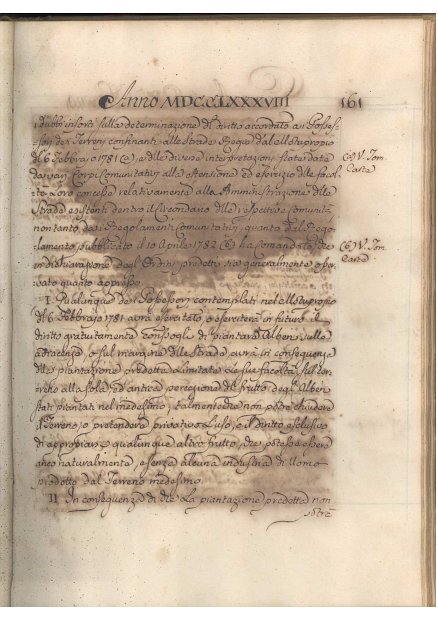 Anno MDCCLXXXVIII 161
i dubbi insorti sulla determinazione del diritto accordato ai Posses-
sori dei Terreni confinanti alle Strade Regie dal Motuproprio
de' 6 Febbrajo 1781 e alle diverse interpretazioni state date
da varj Corpi Comunitativi alla estensione ed esercizio delle facol-
tà Loro concesse relativamente alla Amministrazione delle
Strade esistenti dentro il Circondario delle respettive Comunità
non tanto dai Regolamenti Comunitativi, quanto dal Rego-
lamento pubblicato il 10 Aprile 1782 ha comandato che
in dichiarazione degli Ordini predetti sia generalmente osser-
vato quanto appresso.
I. Qualunque dei Possessori contemplati nel Motuproprio
de' 6 Febbrajo 1781 avrà esercitato o eserciterà in futuro il
diritto gratuitamente concessogli di piantare Alberi sulle
adiacenze, o sul margine delle Strade avrà in conseguenza
della piantazione predetta limitate le sue facoltà sul Ter-
reno alla sola, ed antica percezione del frutto degli Alberi
stati piantati nel medesimo, talmente che non potrà chiudere
il Terreno, o pretendere privativo l'uso, e il diritto esclusivo
di appropiarsi qualunque altro frutto, che potesse essere
naturalmente, e senza alcuna industria di Uomo
prodotto dal Terreno medesimo.
II. In conseguenza di che La piantazione predetta non
potrà
V. Tom.
Carte
V. Tom.
Carte